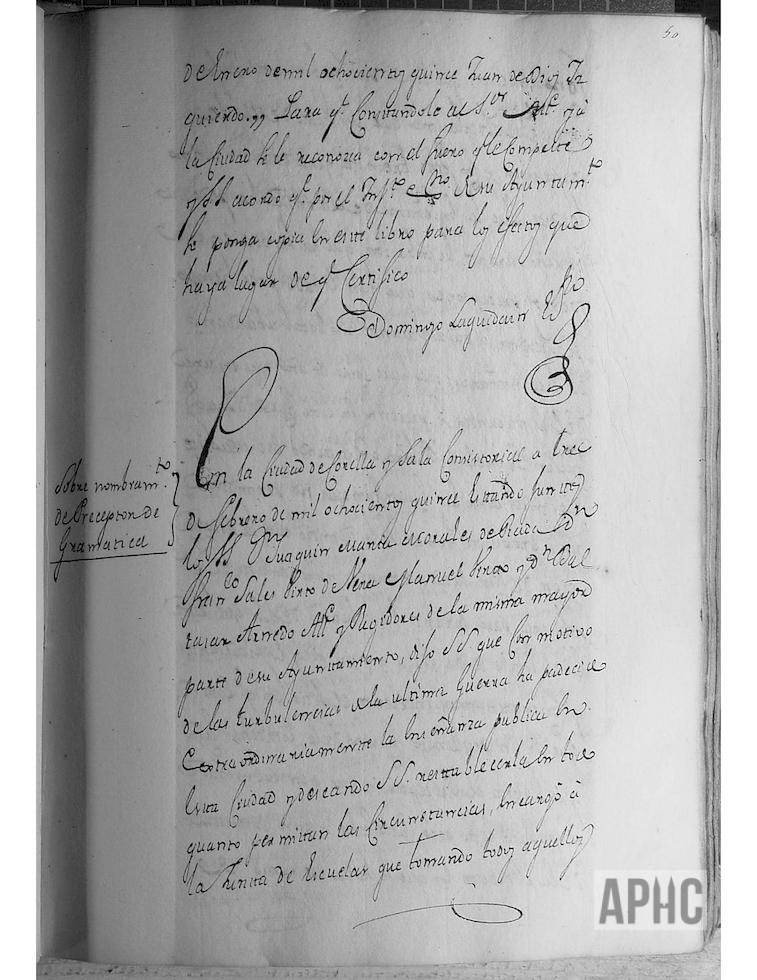 50
de Enero de mil ochocientos quince Juan de Dios Iz
quierdo.,, Para qe. Constandole al Sor. Alce. y à
la Ciudad se le reconozca con el fuero qe le Compette
y SS. acordo qe. por el Infto. esno. de su Ayuntamto.
se ponga copia en este libro para los efectos que
haya lugar de qe Certifico
Domingo Laquidain Esno
En la Ciudad de Corella y Sala Consistorial a trece
de Febrero de mil ochocientos quince Estando Juntos
los SS. Dn Joaquin Maria Morales de Rada Dn
Franco Sales Virto de Vera Manuel Virto y Dn Bal
tasar Arnedo Alce y Regidores de la misma mayor
parte de su Ayuntamiento, dijo SS que Con motivo
de las turbulencias de la ultima Guerra ha padecido
Extraordinariamente la Enseñanza publica En
Esta Ciudad y deseando SS. restablecerla en todo
quanto permitan las Circunstancias, Encargò à
la Junta de Escuelas que tomando todos aquellos
Sobre nombramto.
de Preceptor de
Gramatica
APHC